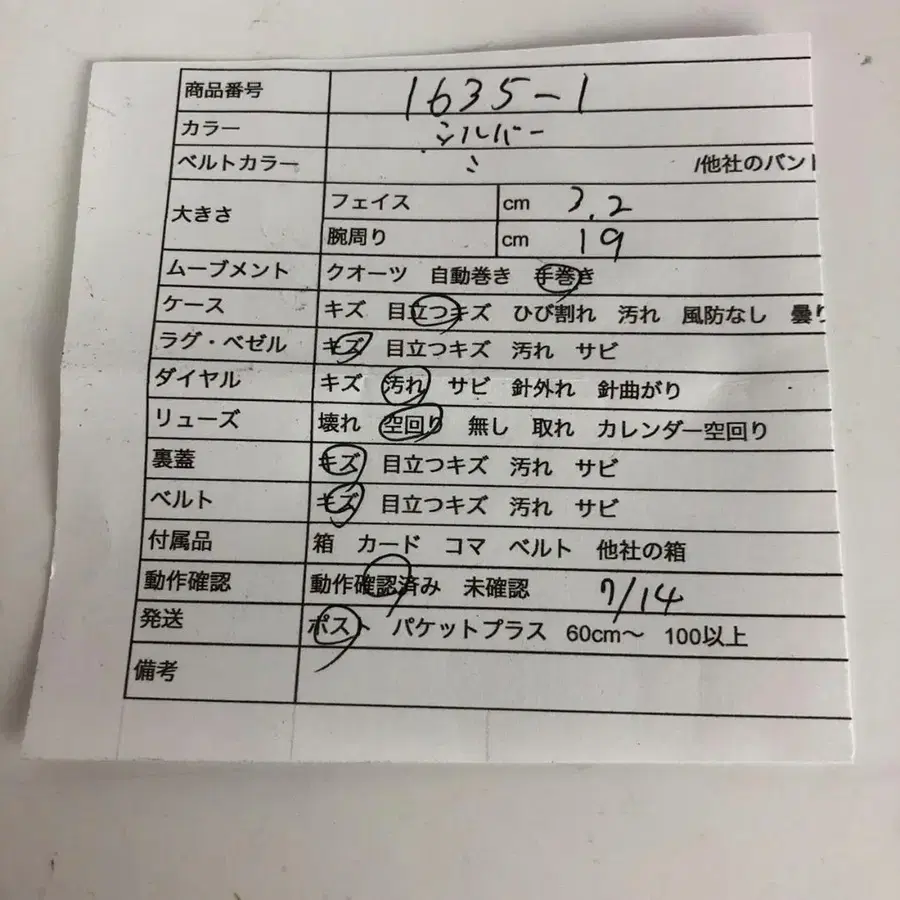 商品番号 1635-1
カラー シルバー
ベルトカラー /他社のバン
大きさ フェイス cm 3.2
腕周り cm 19
ムーブメント クオーツ 自動巻き 手巻き
ケース キズ 目立つキズ ひび割れ 汚れ 風防なし 曇り
ラグ・ベゼル キズ 目立つキズ 汚れ サビ
ダイヤル キズ 汚れ サビ 針外れ 針曲がり
リューズ 壊れ 空回り 無し 取れ カレンダー空回り
裏蓋 キズ 目立つキズ 汚れ サビ
ベルト キズ 目立つキズ 汚れ サビ
付属品 箱 カード コマ ベルト 他社の箱
動作確認 動作確認済み 未確認 7/14
発送 ポスト パケットプラス 60cm〜 100以上
備考